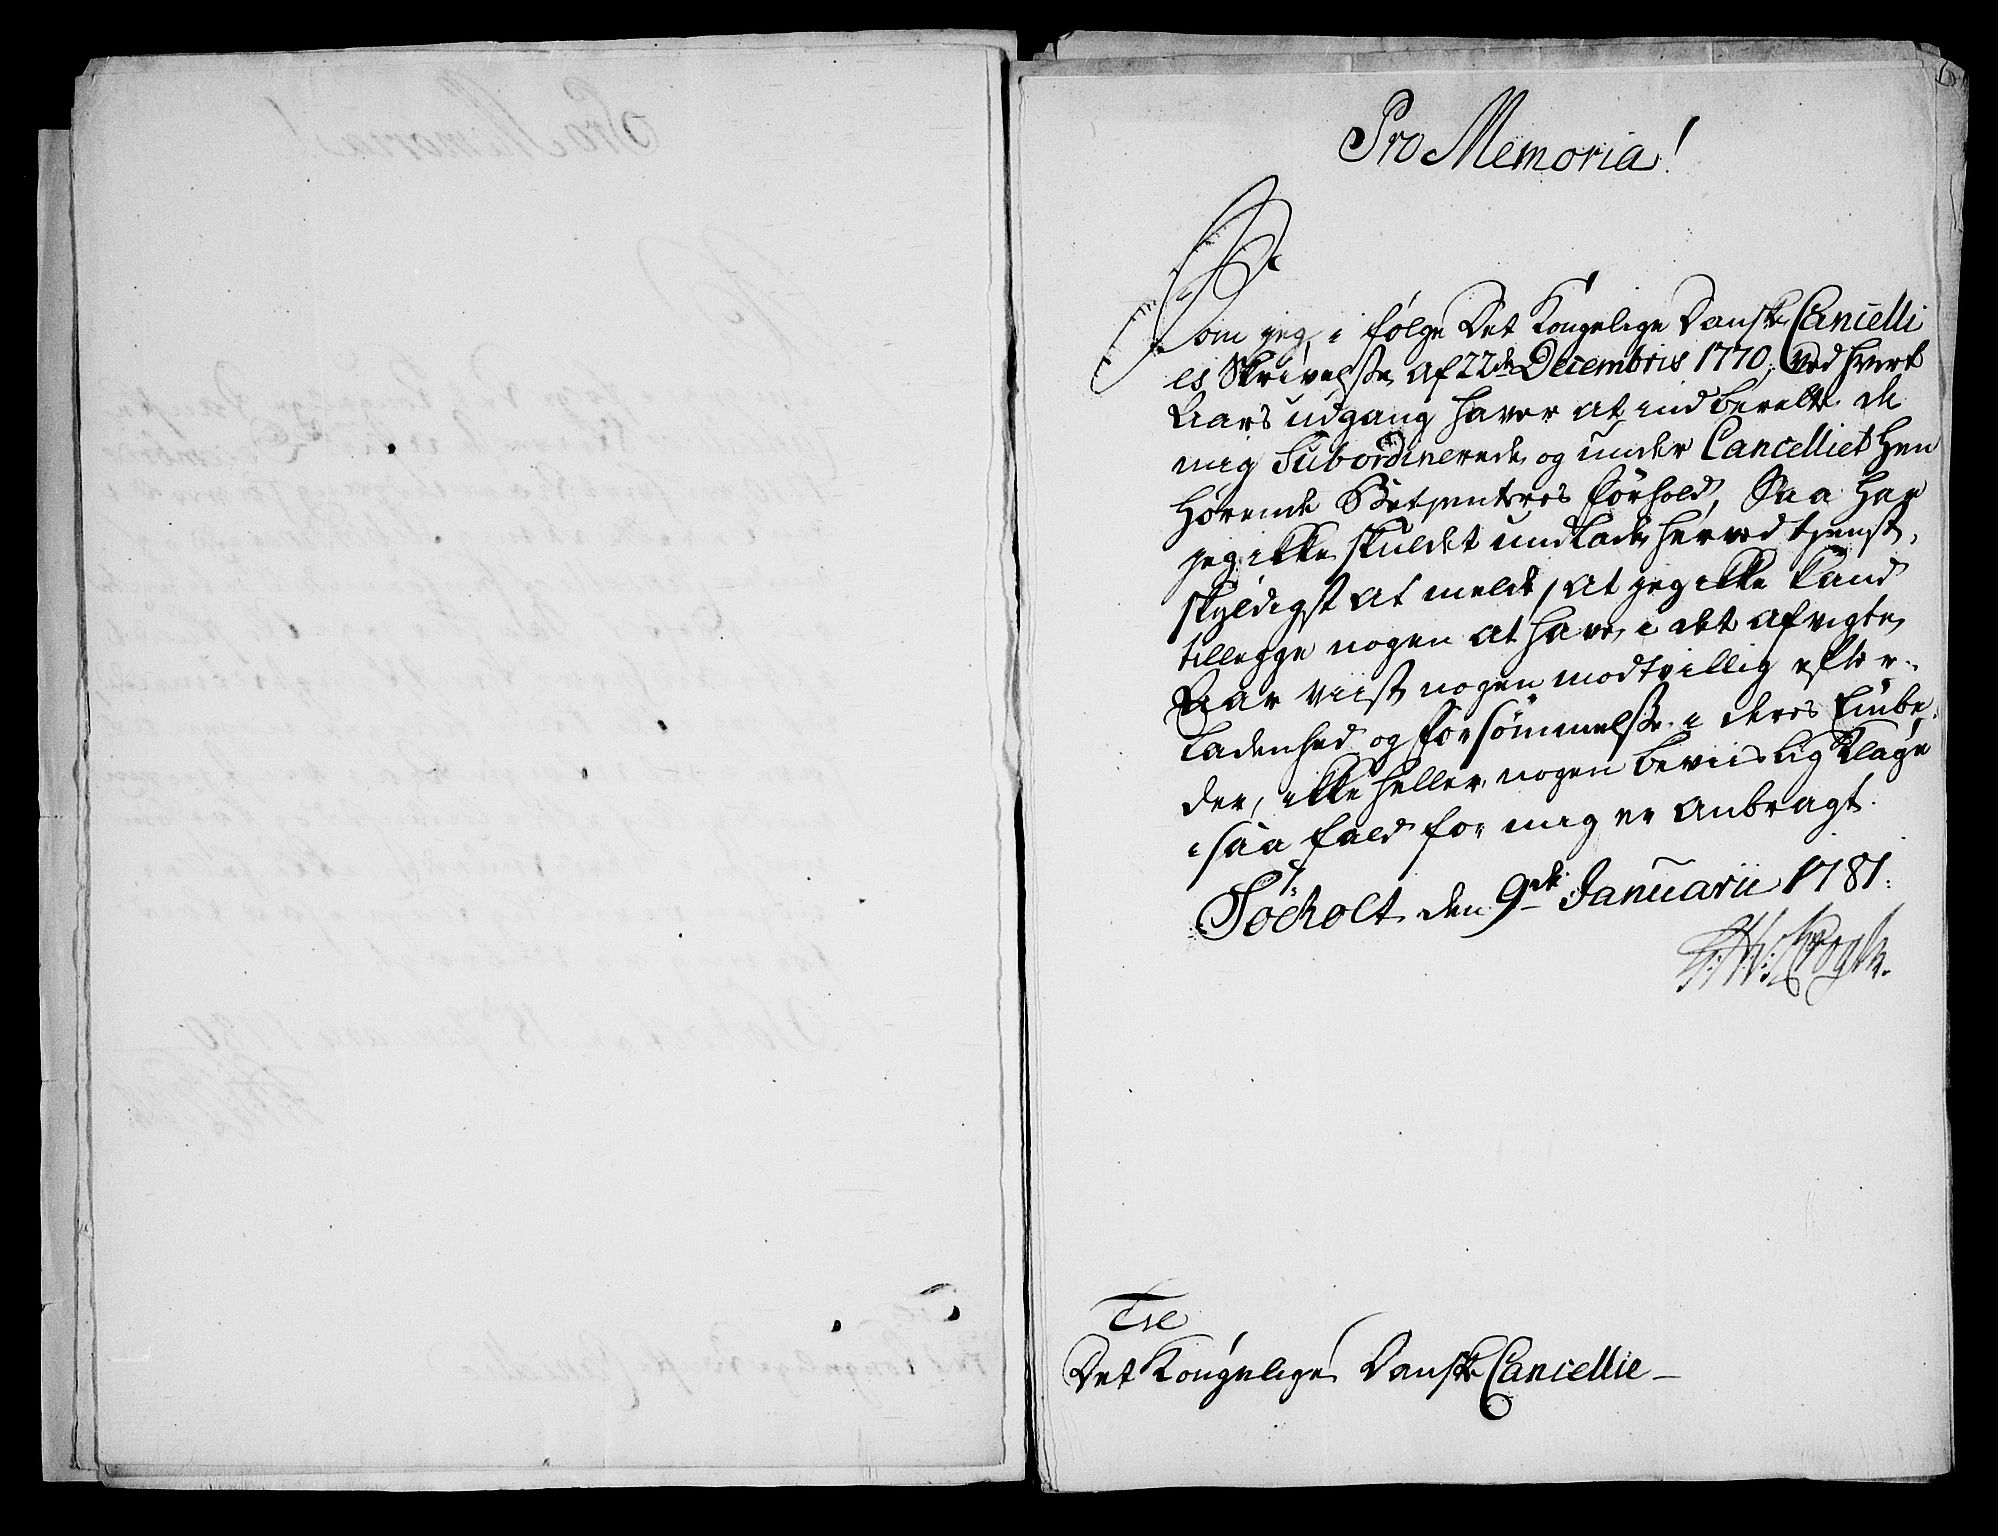 Pro Memoria!
Som jeg, i følge Det Kongelige Danske Cancelli
es Skrivelse af 22de Decembris 1770, ved hvert
Aars udgang haver at indberette de
mig Subordinerede og under Cancelliet hen
hörende Betjenteres forhold, Saa har
jeg ikke skuldet undlade herved tienst,
skyldigst at melde, at jeg ikke kand
tillegge nogen at have i det afvigte
Aar viist nogen modtvillig efter-
ladenhed og forsömmelse i deres Embe,
der, ikke heller nogen beviislig Klage
i saa fald for mig er anbragt.
Söeholt den 9de Januarii 1781.
Til
Det Kongelige Danske Cancellie